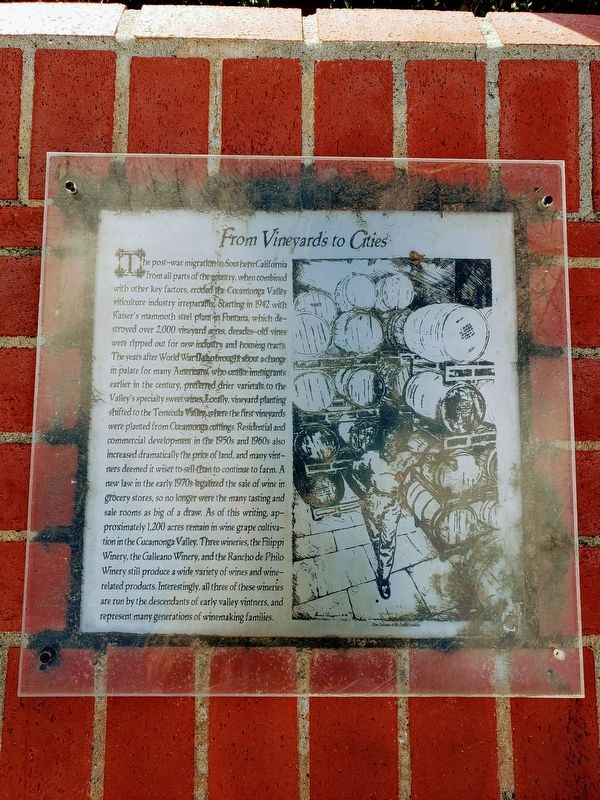 From Vineyards to Cities
The post-war migration to Southern California
from all parts of the country, when combined
with other key factors, eroded the Cucamonga Valley
viticulture industry irreparably. Starting in 1942 with
Kaiser's mammoth steel plant in Fontana, which de-
stroyed over 2,000 vineyard acres, decades-old vines
were ripped out for new industry and housing tracts.
The years after World War II also brought about a change
in palate for many Americans, who unlike immigrants
earlier in the century, preferred drier varietals to the
Valley's specialty sweet wines. Locally, vineyard planting
shifted to the Temecula Valley, where the first vineyards
were planted from Cucamonga cuttings. Residential and
commercial development in the 1950s and 1960s also
increased dramatically the price of land, and many vint-
ners deemed it wiser to sell than to continue to farm. A
new law in the early 1970s legalized the sale of wine in
grocery stores, so no longer were the many tasting and
sale rooms as big of a draw. As of this writing, ap-
proximately 1,200 acres remain in wine grape cultiva-
tion in the Cucamonga Valley. Three wineries, the Filippi
Winery, the Galleano Winery, and the Rancho de Philo
Winery still produce a wide variety of wines and wine-
related products. Interestingly, all three of these wineries
are run by the descendants of early valley vintners, and
represent many generations of winemaking families.
Don Galleano in his family's winery